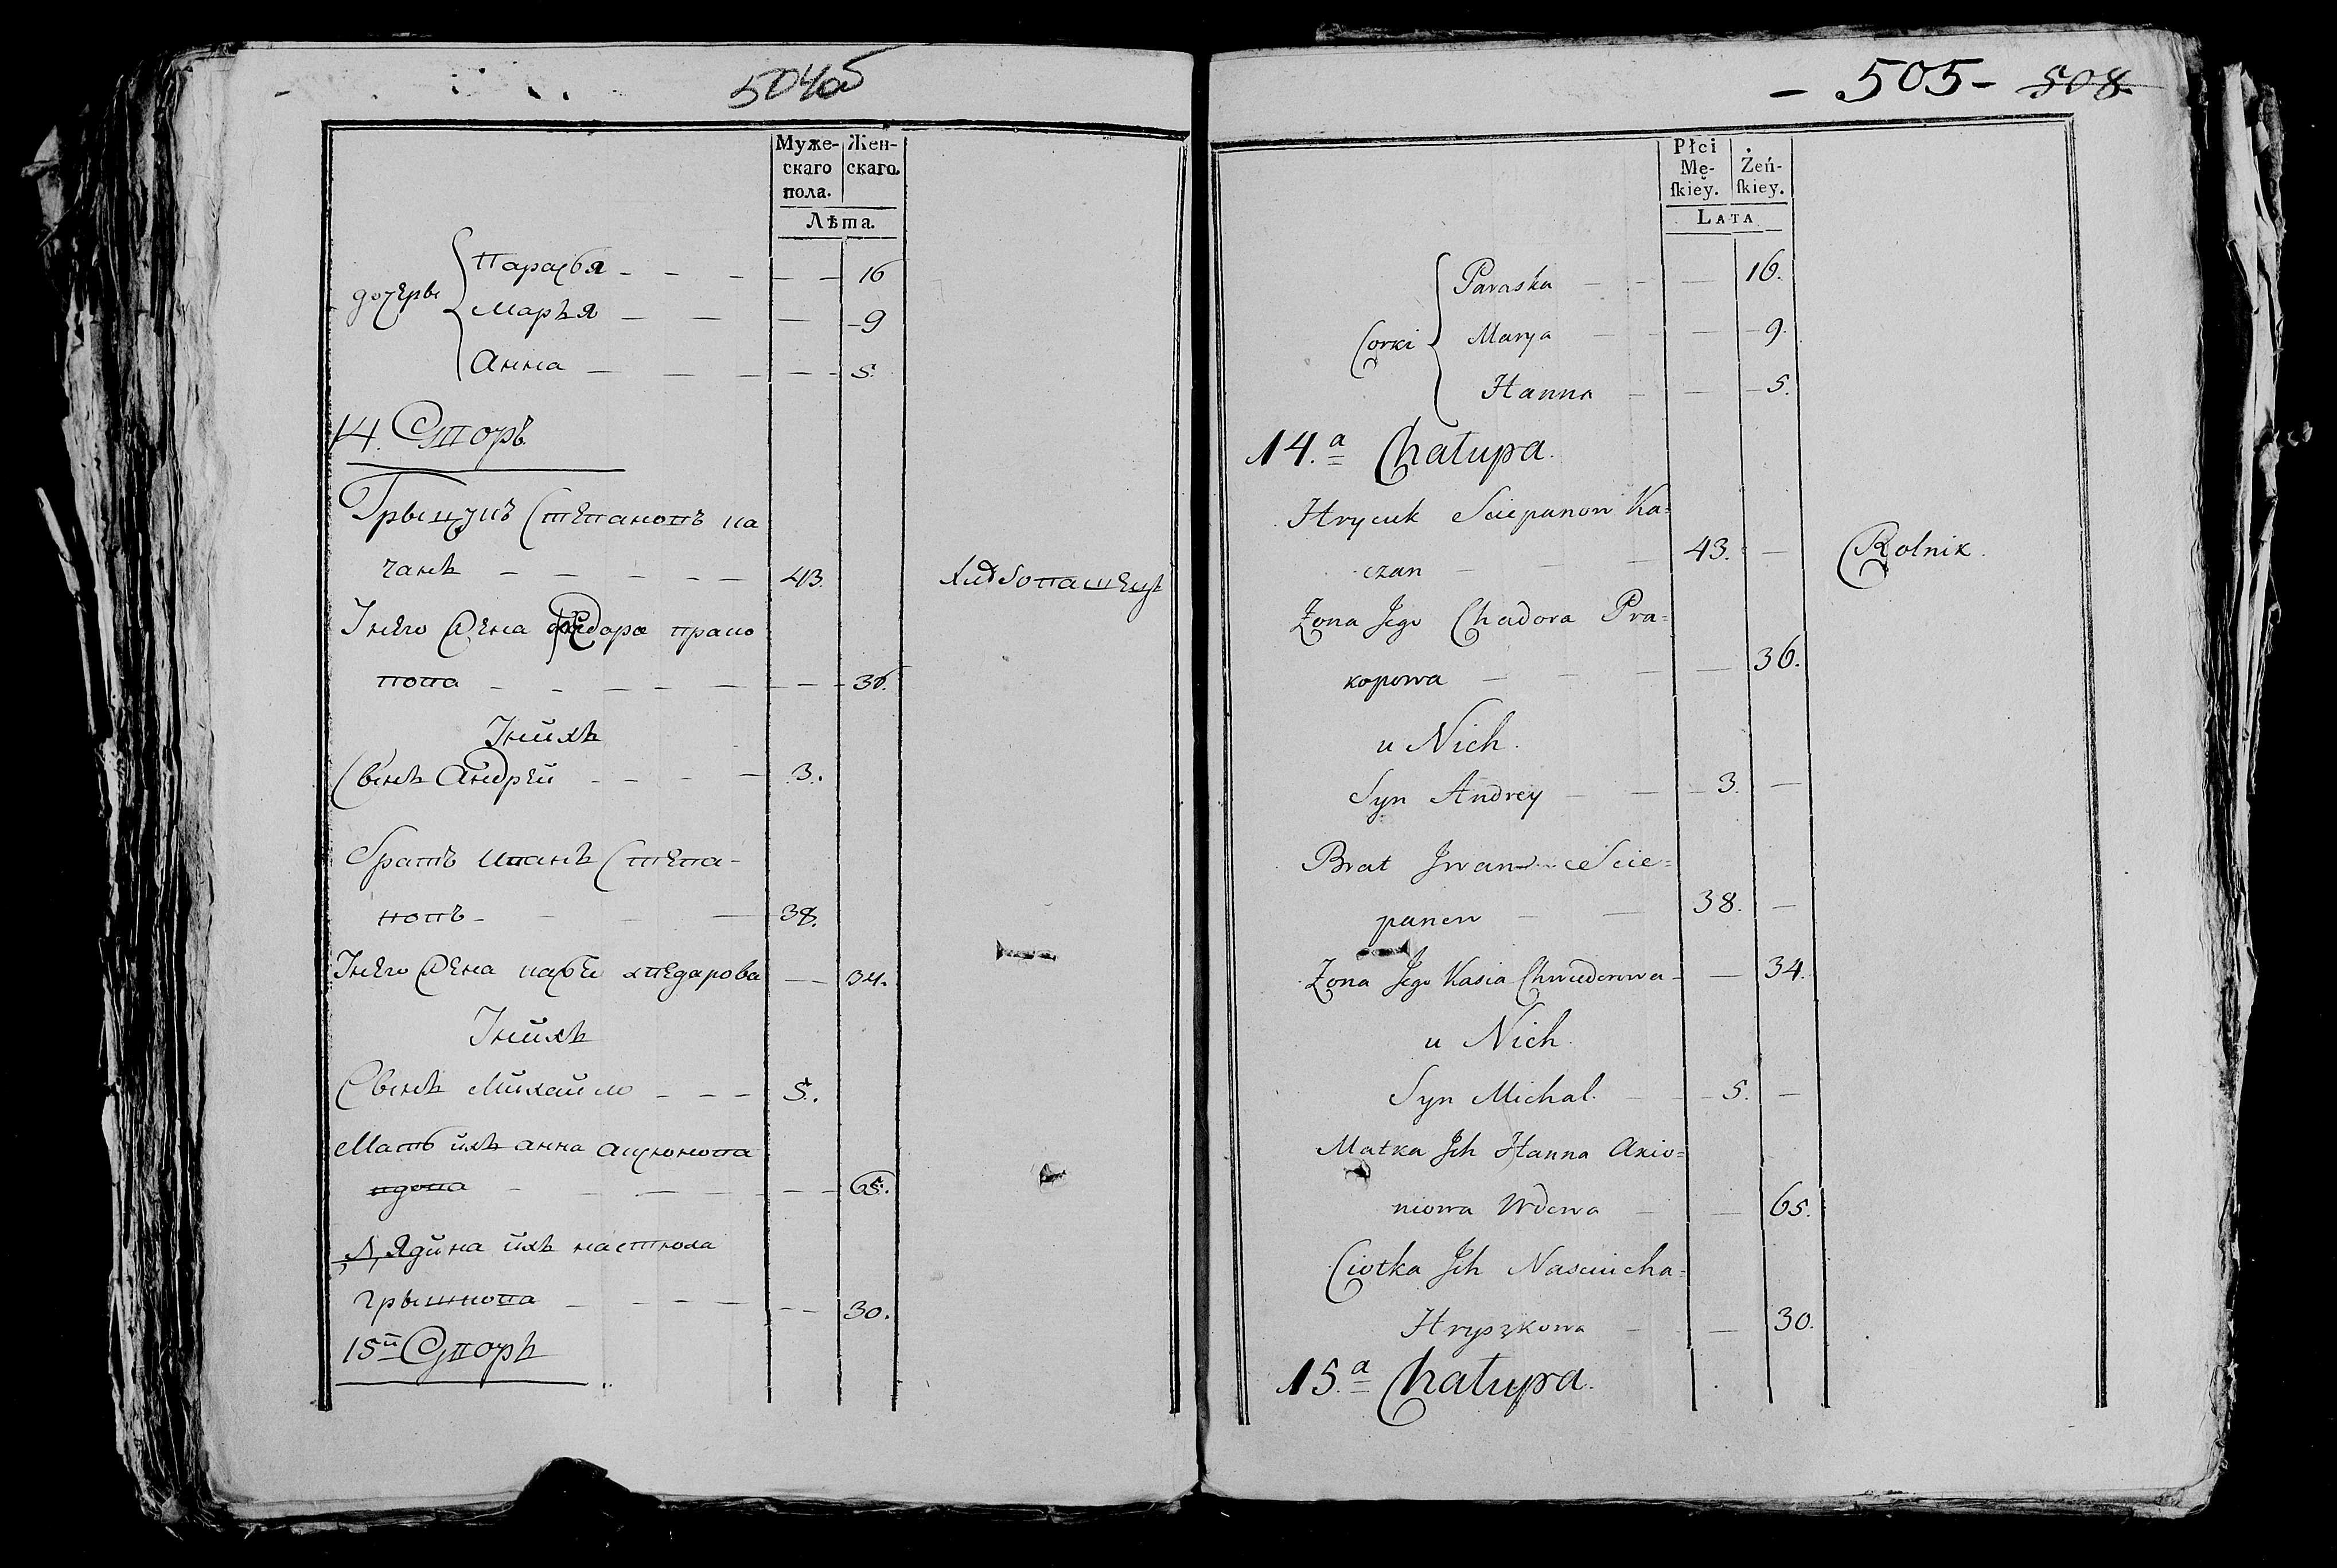 504об
Муже- Жен-
скаго скаго
пола.
Лѣта.
Параսья — — — — — 16
дочерѣ Марья — — — 9
Анна — — — — — 5.
14. Дворъ
Грыцукъ Степановъ Ка
чанъ — — — — — 43. хлѣбопашецъ
У него Жена прако
пова — — — — — — — 36.
У нихъ
Сынъ Андрей — — — — 3.
братъ Иванъ Степа-
новъ — — — — 38.
У него Жена Кася хведарова — — 34.
У нихъ
Сынъ Михайло — — — 5.
Мать ихъ анна
вдова — — — — — — 65.
Дядина ихъ настюха
грышкова — — — — — — 30.
15й Дворъ
- 505 - 508
Płci
Mę- Żeń-
ſkiey. ſkiey.
LATA
Paraska — — — 16.
Corki Marya — — — 9.
Hanna — — — 5.
14.a Chałupa.
Hrycuk Sciepanow Ka=
czan — — — 43. — Rolnik.
Żona Jego Chadora Pra=
kopowa — — — — 36.
u Nich.
Syn Andrey — — — 3. —
Brat Jwan Scie=
panow — — 38. —
Żona Jego Kasia Chwiedorowa — — 34.
u Nich.
Syn Michal. — — 5. —
Matka Jch Hanna Axio=
niowa Wdowa — — 65.
Ciotka Jch Nasciucha=
Hryszkowa — — 30.
15.a Chałupa.